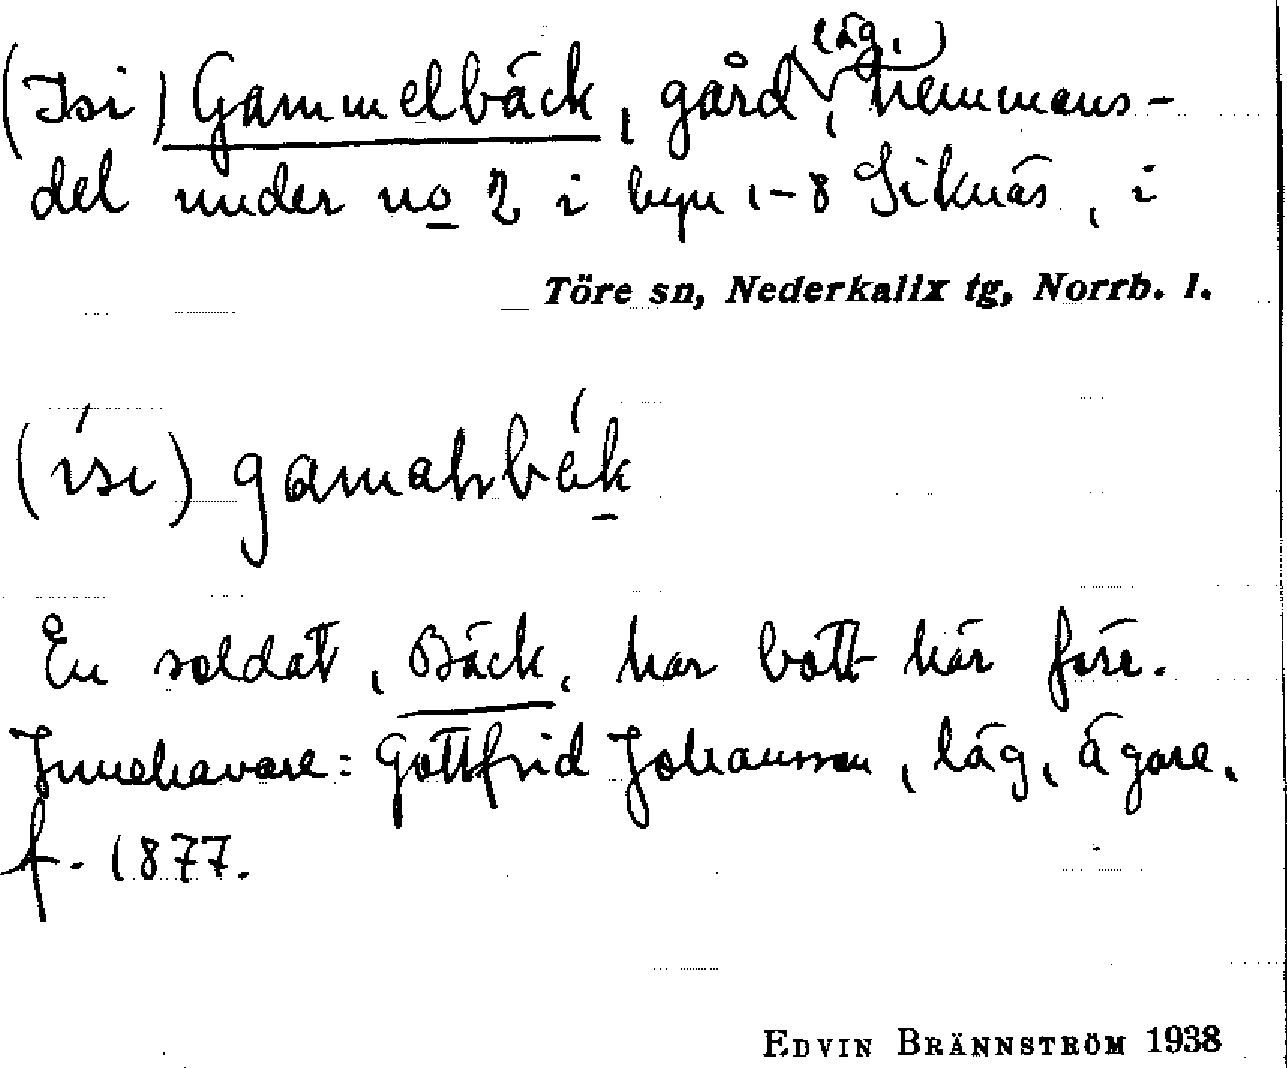 (läg.)
(Isi) Gammelbäck, gård, hemmans-
del under no 2 i byn 1-8 Siknäs, i
Töre sn, Nederkalix tg, Norrb. l.
(ísı)
En soldat, Bäck, har bott här före.
Innehavare: Gottfrid Johansson, läg, ägare,
f. 1877.
EDVIN BRÄNNSTRÖM 1938